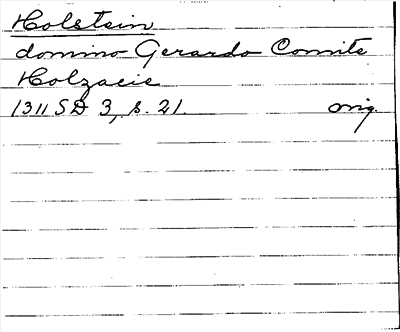 Holstein
domino Gerardo Comite
Holzacie
1311 SD 3, s. 21. orig.